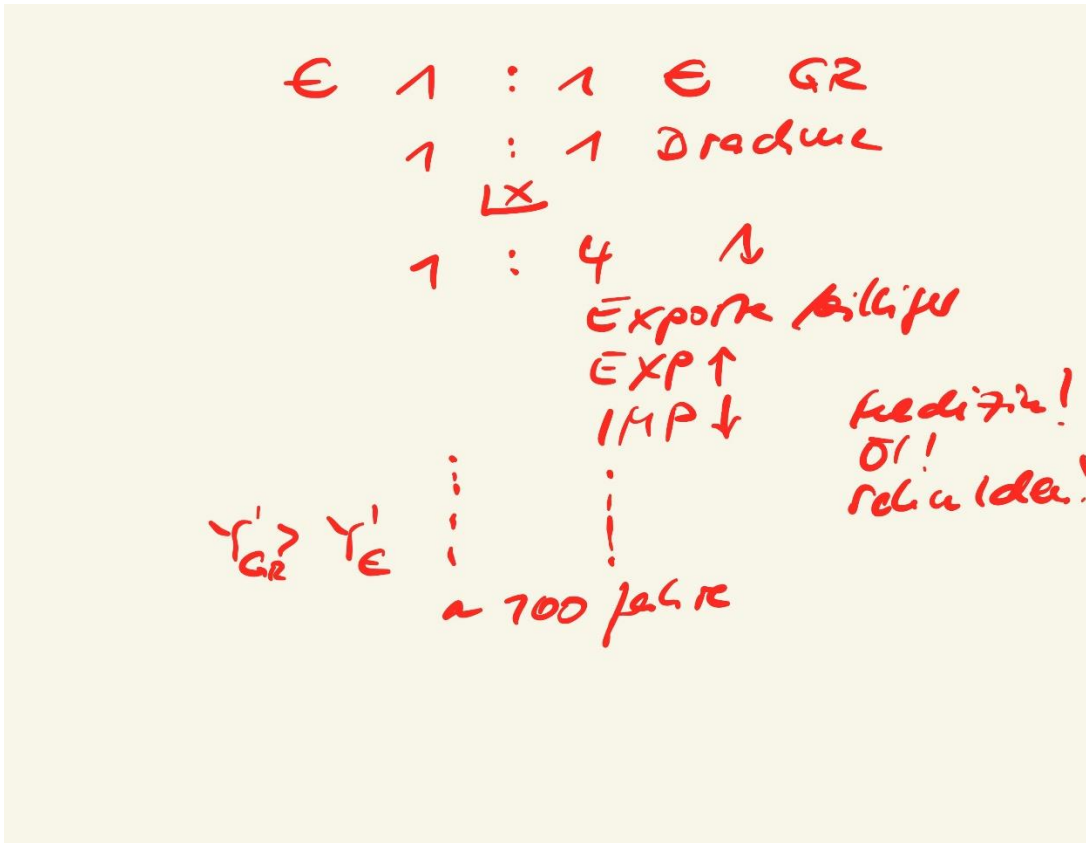 € 1 : 1 € GR
1 : 1 Drachme
LX
1 : 4
Exporte billiger
EXP ↑
IMP ↓
Medizin!
Öl!
Schulden!
Y'GR > Y'€
~ 100 Jahre